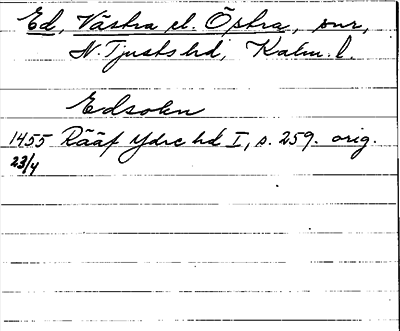 Ed, Västra el. Östra, snr,
N. Tjusts hd, Kalm. l.
Edsokn
1455 Rääf Ydre hd I, s. 259. orig.
23/4